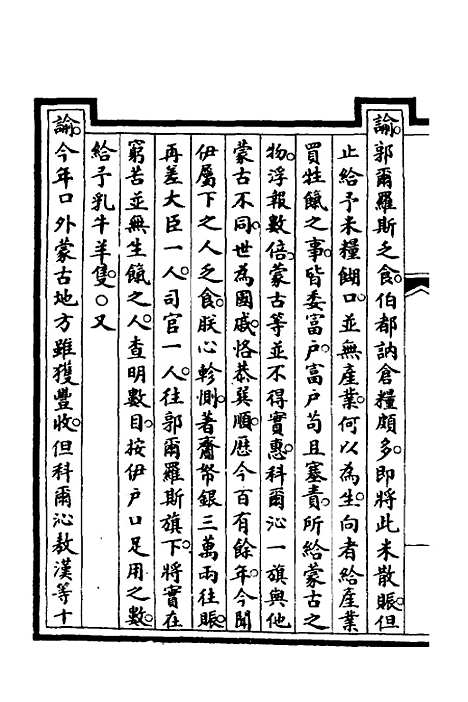 諭。郭爾羅斯乏食。伯都訥倉糧頗多。即將此米散賑。但
止給予米糧餬口。並無產業。何以為生。向者給產業
買牲餼之事。皆委富戶。富戶苟且塞責。所給蒙古之
物。浮報數倍。蒙古等並不得實惠。科爾沁一旗與他
蒙古不同。世為國戚。恪恭巽順。歷今百有餘年。今聞
伊屬下之人乏食。朕心軫惻。著齎帑銀三萬兩往賑。
再差大臣一人。司官一人。往郭爾羅斯旗下。將實在
窮苦並無生餼之人。查明數目。按伊戶口足用之數。
給予乳牛羊隻。○又
諭。今年口外蒙古地方雖獲豐收。但科爾沁敖漢等十